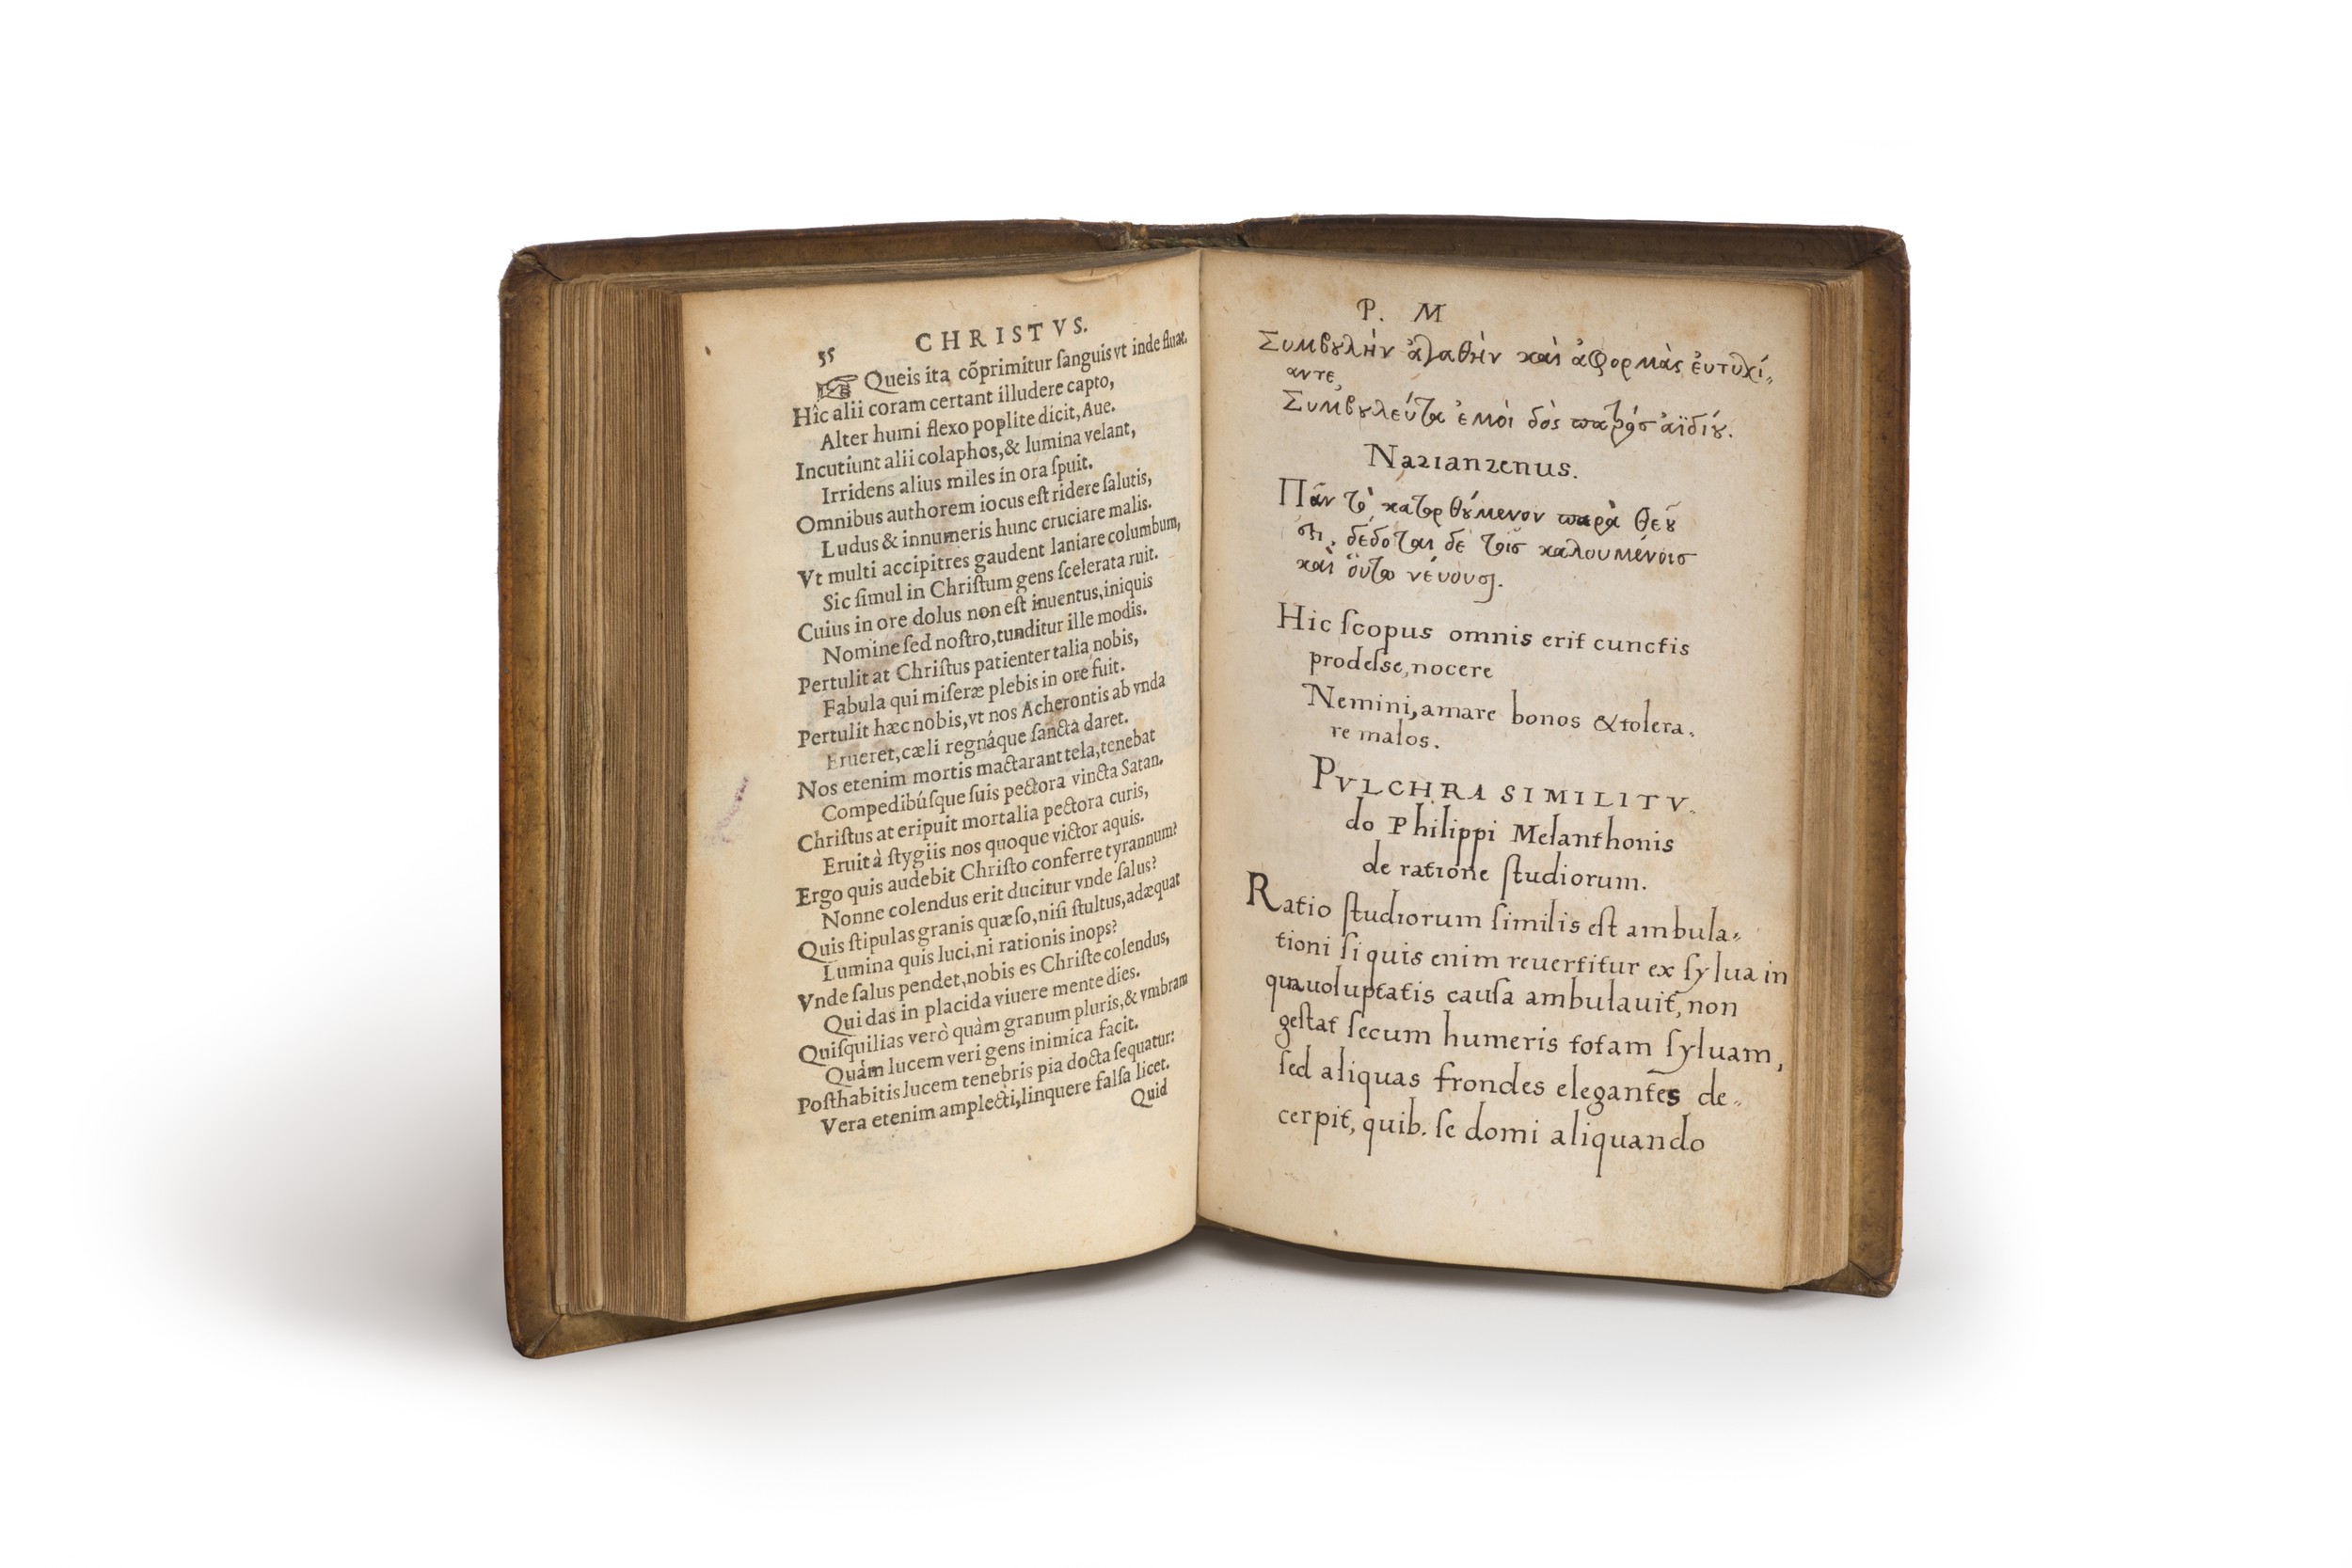 35 CHRISTVS.
☞ Queis ita cõprimitur ſanguis vt inde fluat.
Hîc alii coram certant illudere capto,
Alter humi flexo poplite dicit, Aue.
Incutiunt alii colaphos, & lumina velant,
Irridens alius miles in ora ſpuit.
Omnibus authorem iocus eſt ridere ſalutis,
Ludus & innumeris hunc cruciare malis.
Vt multi accipitres gaudent laniare columbum,
Sic ſimul in Chriſtum gens ſcelerata ruit.
Cuius in ore dolus non eſt inuentus, iniquis
Nomine ſed noſtro, tunditur ille modis.
Pertulit at Chriſtus patienter talia nobis,
Fabula qui miſeræ plebis in ore fuit.
Pertulit hæc nobis, vt nos Acherontis ab vnda
Erueret, cæli regnáque ſancta daret.
Nos etenim mortis mactarant tela, tenebat
Compedibúſque ſuis pectora vincta Satan.
Chriſtus at eripuit mortalia pectora curis,
Eruit à ſtygiis nos quoque victor aquis.
Ergo quis audebit Chriſto conferre tyrannum?
Nonne colendus erit ducitur vnde ſalus?
Quis ſtipulas granis quæſo, niſi ſtultus, adæquat
Lumina quis luci, ni rationis inops?
Vnde ſalus pendet, nobis es Chriſte colendus,
Qui das in placida viuere mente dies.
Quiſquilias verò quàm granum pluris, & vmbram
Quàm lucem veri gens inimica facit.
Poſthabitis lucem tenebris pia docta ſequatur:
Vera etenim amplecti, linquere falſa licet.
Quid
P. M
Συμβȣλὴν ἀγαθὴν καὶ ἀφορμὰς ἐυτυχί⸗
αντε,
Συμβȣλεύτα ἐμοὶ δὸς πατρός ἀϊδίȣ.
Nazianzenus.
Πᾶν τὸ κατορθȣ́μενον παρὰ θεȣ͂
ϛι, δέδοται δὲ τοῖς καλουμένοις
καὶ ὅυτω νέυουσι.
Hic ſcopus omnis erit cunctis
prodeſse, nocere
Nemini, amare bonos & tolera⸗
re malos.
PVLCHRA SIMILITV⸗
do Philippi Melanthonis
de ratione ſtudiorum.
Ratio ſtudiorum ſimilis eſt ambula⸗
tioni ſi quis enim reuertitur ex ſylua in
qua uoluptatis cauſa ambulauit, non
geſtat ſecum humeris totam ſyluam,
ſed aliquas frondes elegantes de⸗
cerpit, quib. ſe domi aliquando